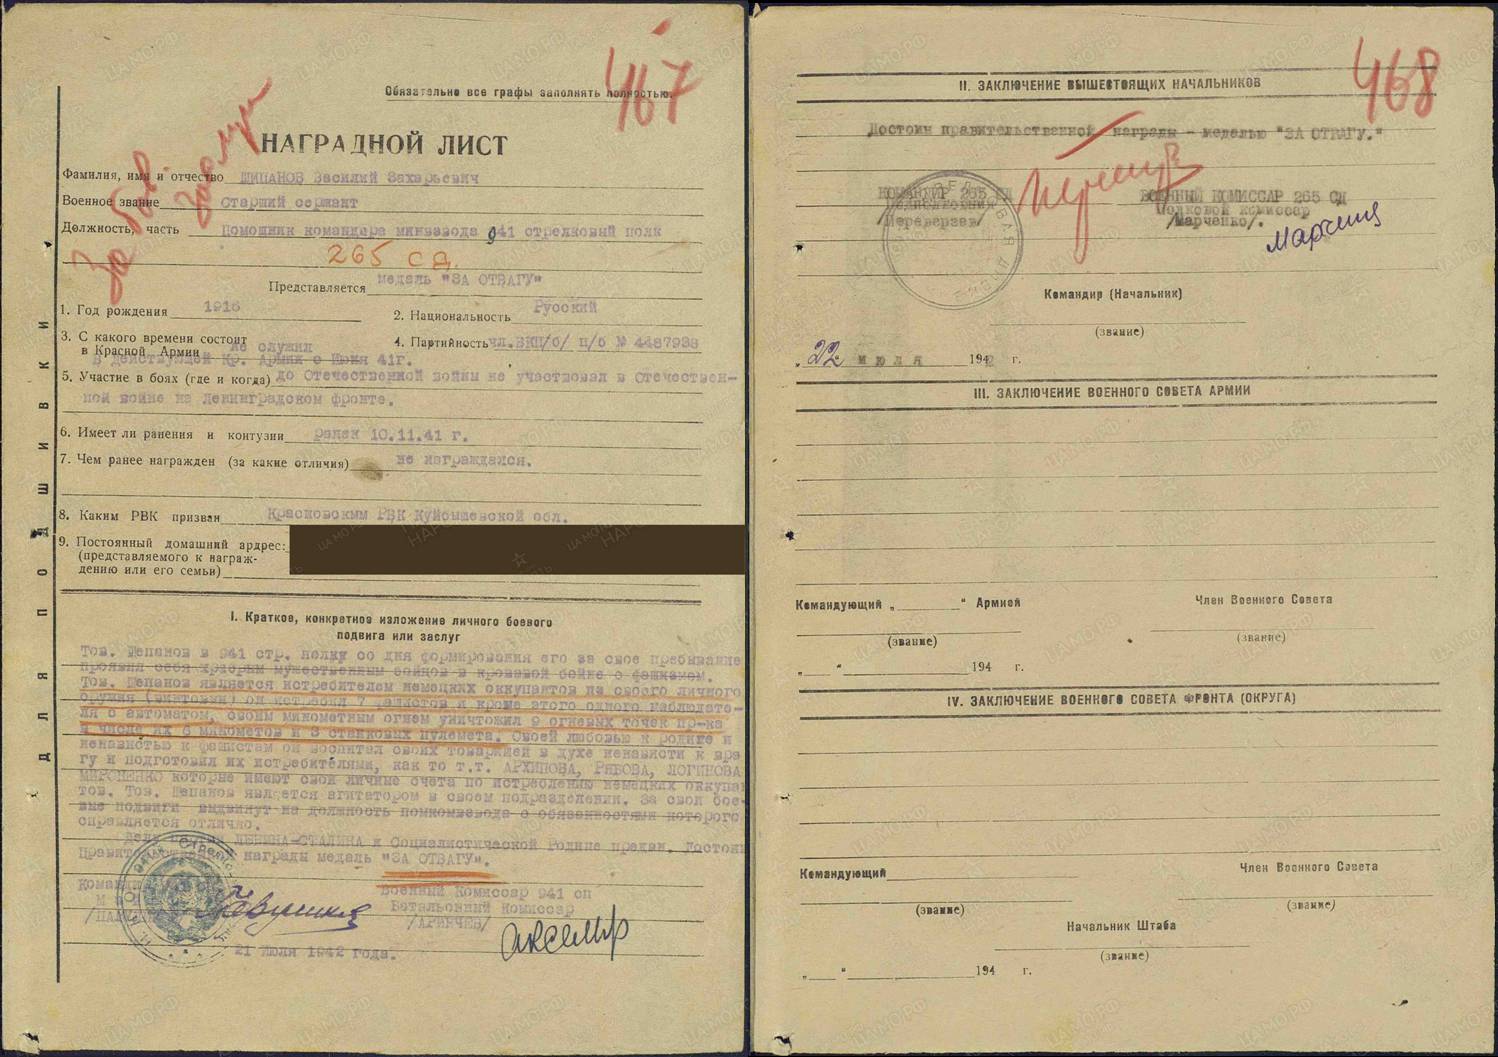 467
Обязательно все графы заполнять полностью.
За бов. заслуги
НАГРАДНОЙ ЛИСТ
Фамилия, имя и отчество ЩИПАНОВ Василий Захарьевич
Военное звание Старший сержант
Должность, часть Помощник командира минвзвода 941 стрелковый полк
265 СД.
Представляется медаль "ЗА ОТВАГУ"
1. Год рождения 1916 2. Национальность Русский
3. С какого времени состоит в Красной Армии не служил
4. Партийность чл.ВКП/б/ п/б № 4487938
в действующей Кр. Армии с Июня 41г.
5. Участие в боях (где и когда) до Отечественной войны не участвовал в Отечествен-
ной войне на Ленинградском фронте.
6. Имеет ли ранения и контузии ранен 10.11.41 г.
7. Чем ранее награжден (за какие отличия) не награждался.
8. Каким РВК призван Красновским РВК Куйбышевской обл.
9. Постоянный домашний ардрес:
(представляемого к награж-
дению или его семьи)
ДЛЯ ПОДШИВКИ
I. Краткое, конкретное изложение личного боевого
подвига или заслуг
Тов. Щепанов в 941 стр. полку со дня формирования его за свое пребывание
проявил себя храбрым мужественным бойцов в кровавой войне с фашизмом.
Тов. Щепанов является истребителем немецких оккупантов из своего личного
оружия (винтовки) он истребил 7 фашистов и кроме этого одного наблюдате-
ля с автоматом, своим минометным огнем уничтожил 9 огневых точек пр-ка
в числе их 6 минометов и 3 станковых пулемета. Своей любовью к родине и
ненавистью к фашистам он воспитал своих товарищей в духе ненависти к вра-
гу и подготовил их истребителями, как то т.т. АРХИПОВА, РЯБОВА, ЛОГИНОВА
МИРОНЕНКО которые имеют свои личные счета по истреблению немецких оккупан
тов. Тов. Щепанов является агитатором в своем подразделении. За свои бое-
вые подвиги выдвинут на должность помкомвзвода с обязанностями которого
справляется отлично.
Делу партии ЛЕНИНА-СТАЛИНА и Социалистической Родине предан. Достоин
Правительственной награды медаль "ЗА ОТВАГУ".
Военный Комиссар 941 сп
Батальонный Комиссар
21 Июля 1942 года.
468
II. ЗАКЛЮЧЕНИЕ ВЫШЕСТОЯЩИХ НАЧАЛЬНИКОВ
Достоин правительственной награды - медалью "ЗА ОТВАГУ."
КОМАНДИР 265 СД
Подполковник
/Переверзев/
ВОЕННЫЙ КОМИССАР 265 СД
Полковой комиссар
/Марченко/.
Командир (Начальник)
(звание)
"22" июля 1942 г.
III. ЗАКЛЮЧЕНИЕ ВОЕННОГО СОВЕТА АРМИИ
Командующий „ “ Армией
Член Военного Совета
(звание)
(звание)
„ “ 194 г.
IV. ЗАКЛЮЧЕНИЕ ВОЕННОГО СОВЕТА ФРОНТА (ОКРУГА)
Командующий
Член Военного Совета
(звание)
(звание)
Начальник Штаба
(звание)
„ “ 194 г.